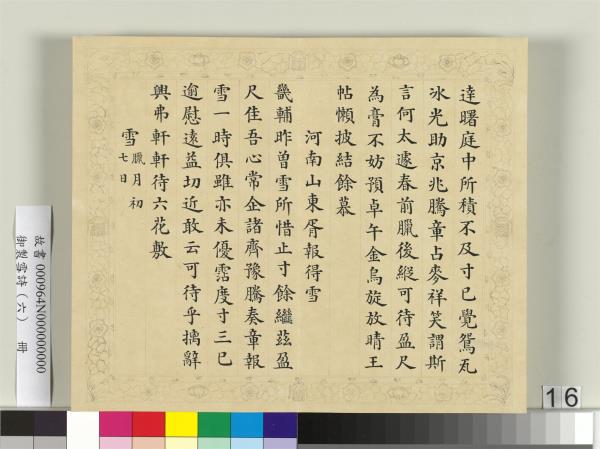 達曙庭中所積不及寸已覺鴛瓦
冰光助京兆騰章占麥祥笑謂斯
言何太遽春前臘後縱可待盈尺
為膏不妨預卓午金烏旋放晴王
帖懶披結餘慕
河南山東胥報得雪
畿輔昨曽雪所惜止寸餘繼茲盈
尺佳吾心常企諸齊豫騰奏章報
雪一時俱雖亦未優霑度寸三已
逾慰遠益切近敢云可待乎摛辭
興弗軒軒待六花敷
雪臘月初
七日
故書 000964N000000000
御製雪詩（六） 冊
16